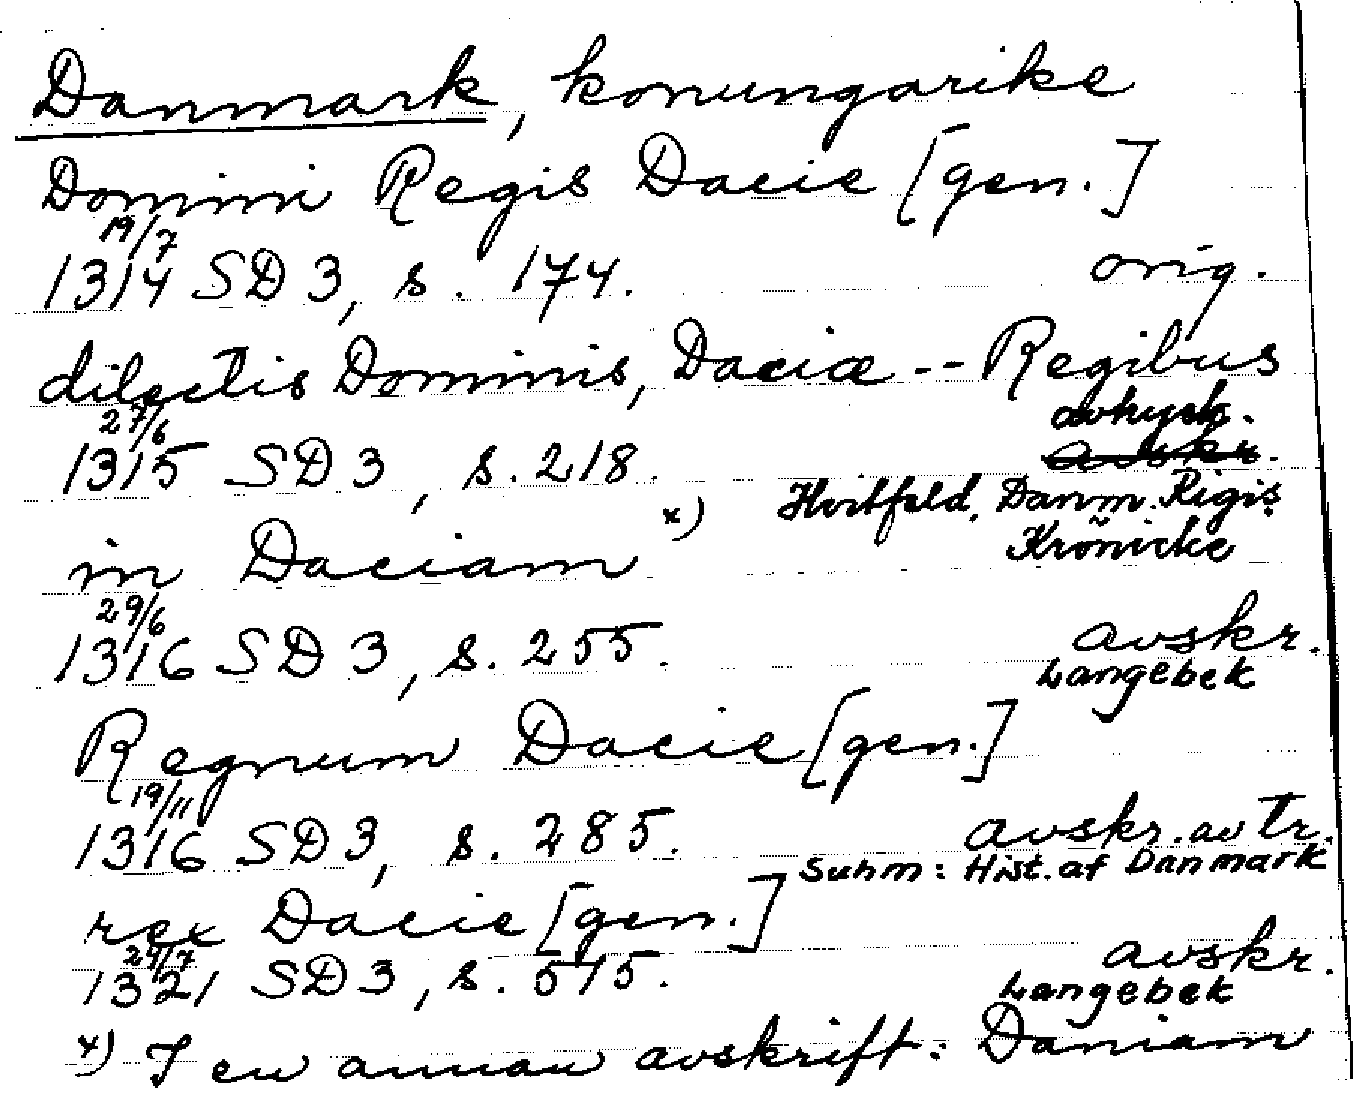 Danmark, konungarike
Domini Regis Dacie [gen.]
19/7
1314 SD 3, s. 174. orig.
dilectis Dominis, Daciæ -- Regibus
27/6 avtryck.
1315 SD 3, s. 218. avskr.
x) Hvitfeld, Danm. Rigis
in Daciam Krönicke
29/6
1316 SD 3, s. 255. avskr.
Langebek
Regnum Dacie [gen.]
19/11
1316 SD 3, s. 285. avskr. av tr.
Suhm: Hist. af Danmark
rex Dacie [gen.]
1321 SD 3, s. 575. avskr.
Langebek
x) I en annan avskrift: Daniam